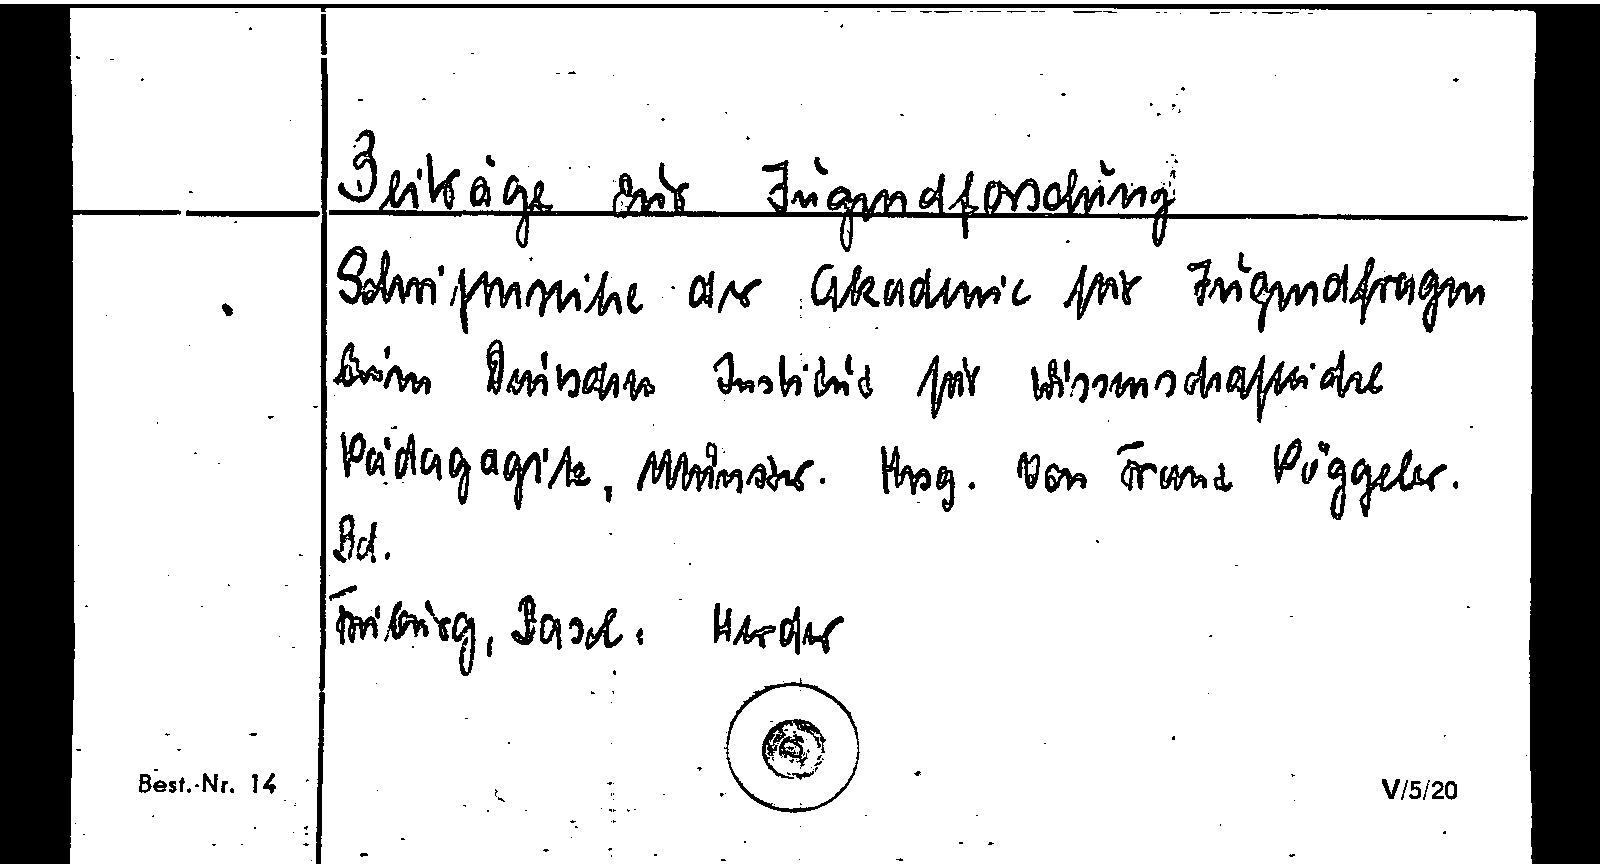 Beiträge zur Jugendforschung
Schriftenreihe der Akademie für Jugendfragen
beim Deutschen Institut für wissenschaftliche
Pädagogik, Münster. Hrsg. von Franz Pöggeler.
Bd.
Freiburg, Basel: Herder
Best.-Nr. 14
V/5/20